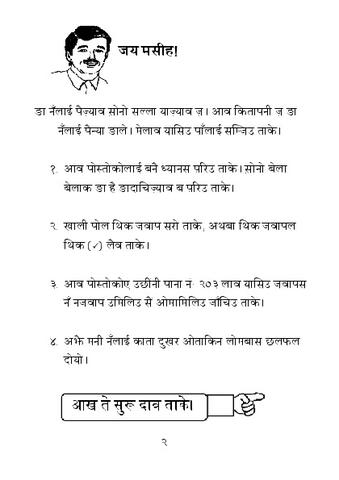 जय मसीह!
ङा नँलाई पैज्याव सोनो सल्ला याज्याव ज़। आव कितापनी ज़ ङा
नँलाई पैन्या ङाले। मेलाव यासिउ पाँलाई सम्जिउ ताके।
१. आव पोस्तोकोलाई बनै ध्यानस परिउ ताके। सोनो बेला
बेलाक ङा है ङादाचिज्याव ब परिउ ताके।
२. खाली पोल थिक जवाप सरो ताके, अथबा थिक जवापल
थिक (✓) लैव ताके।
३. आव पोस्तोकोए उछीनी पाना नं॰ २०३ लाव यासिउ जवापस
नँ नजवाप उमिलिउ सै ओमामिलिउ जाँचिउ ताके।
४. अझै मनी नँलाई काता दुखर ओताकिन लोमबास छलफल
दोयो।
आख ते सुरू दाव ताके।
२